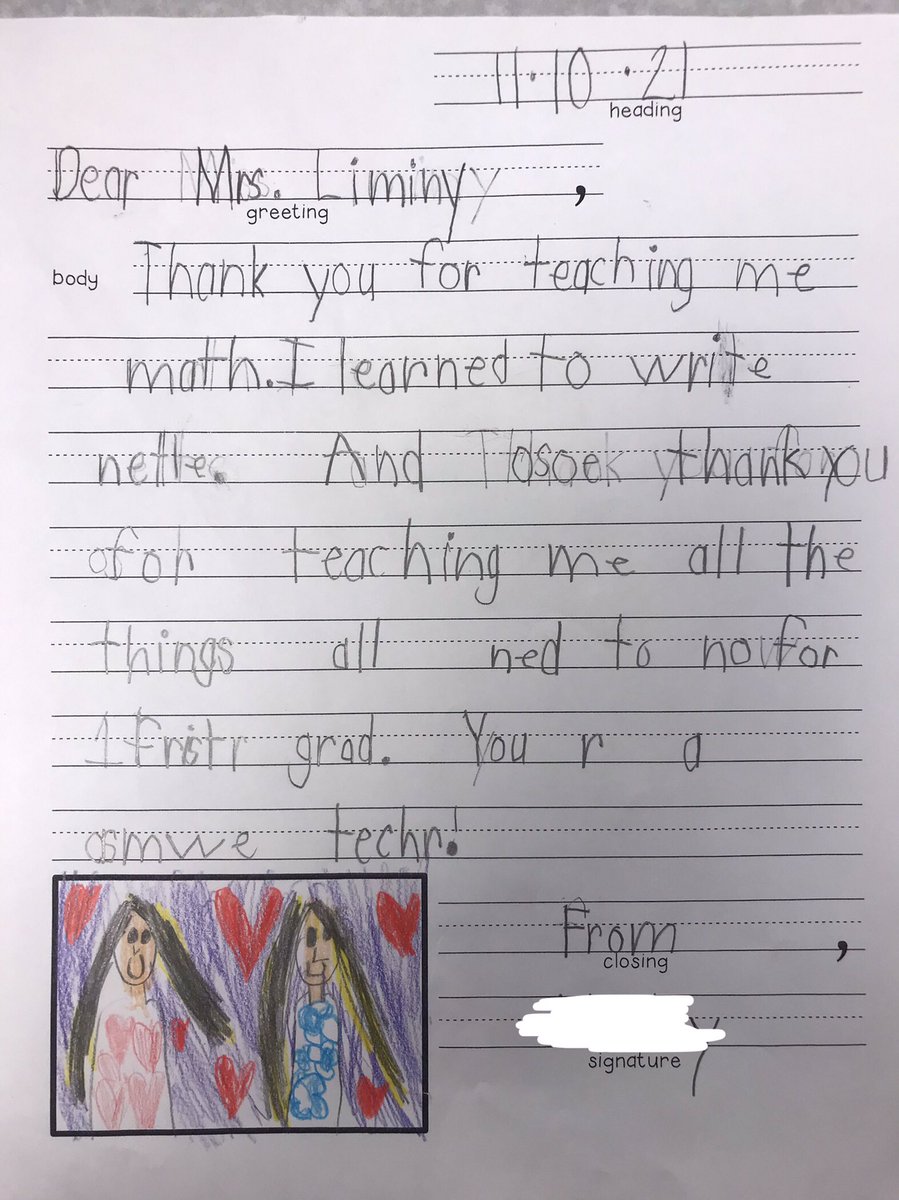 11.10.21
heading
Dear Mrs. Liminy,
greeting
body Thank you for teaching me
math. I learned to write
And thank you
teaching me all the
things all ned to no for
grad. You r a
asmwe techr!
From,
closing
signature